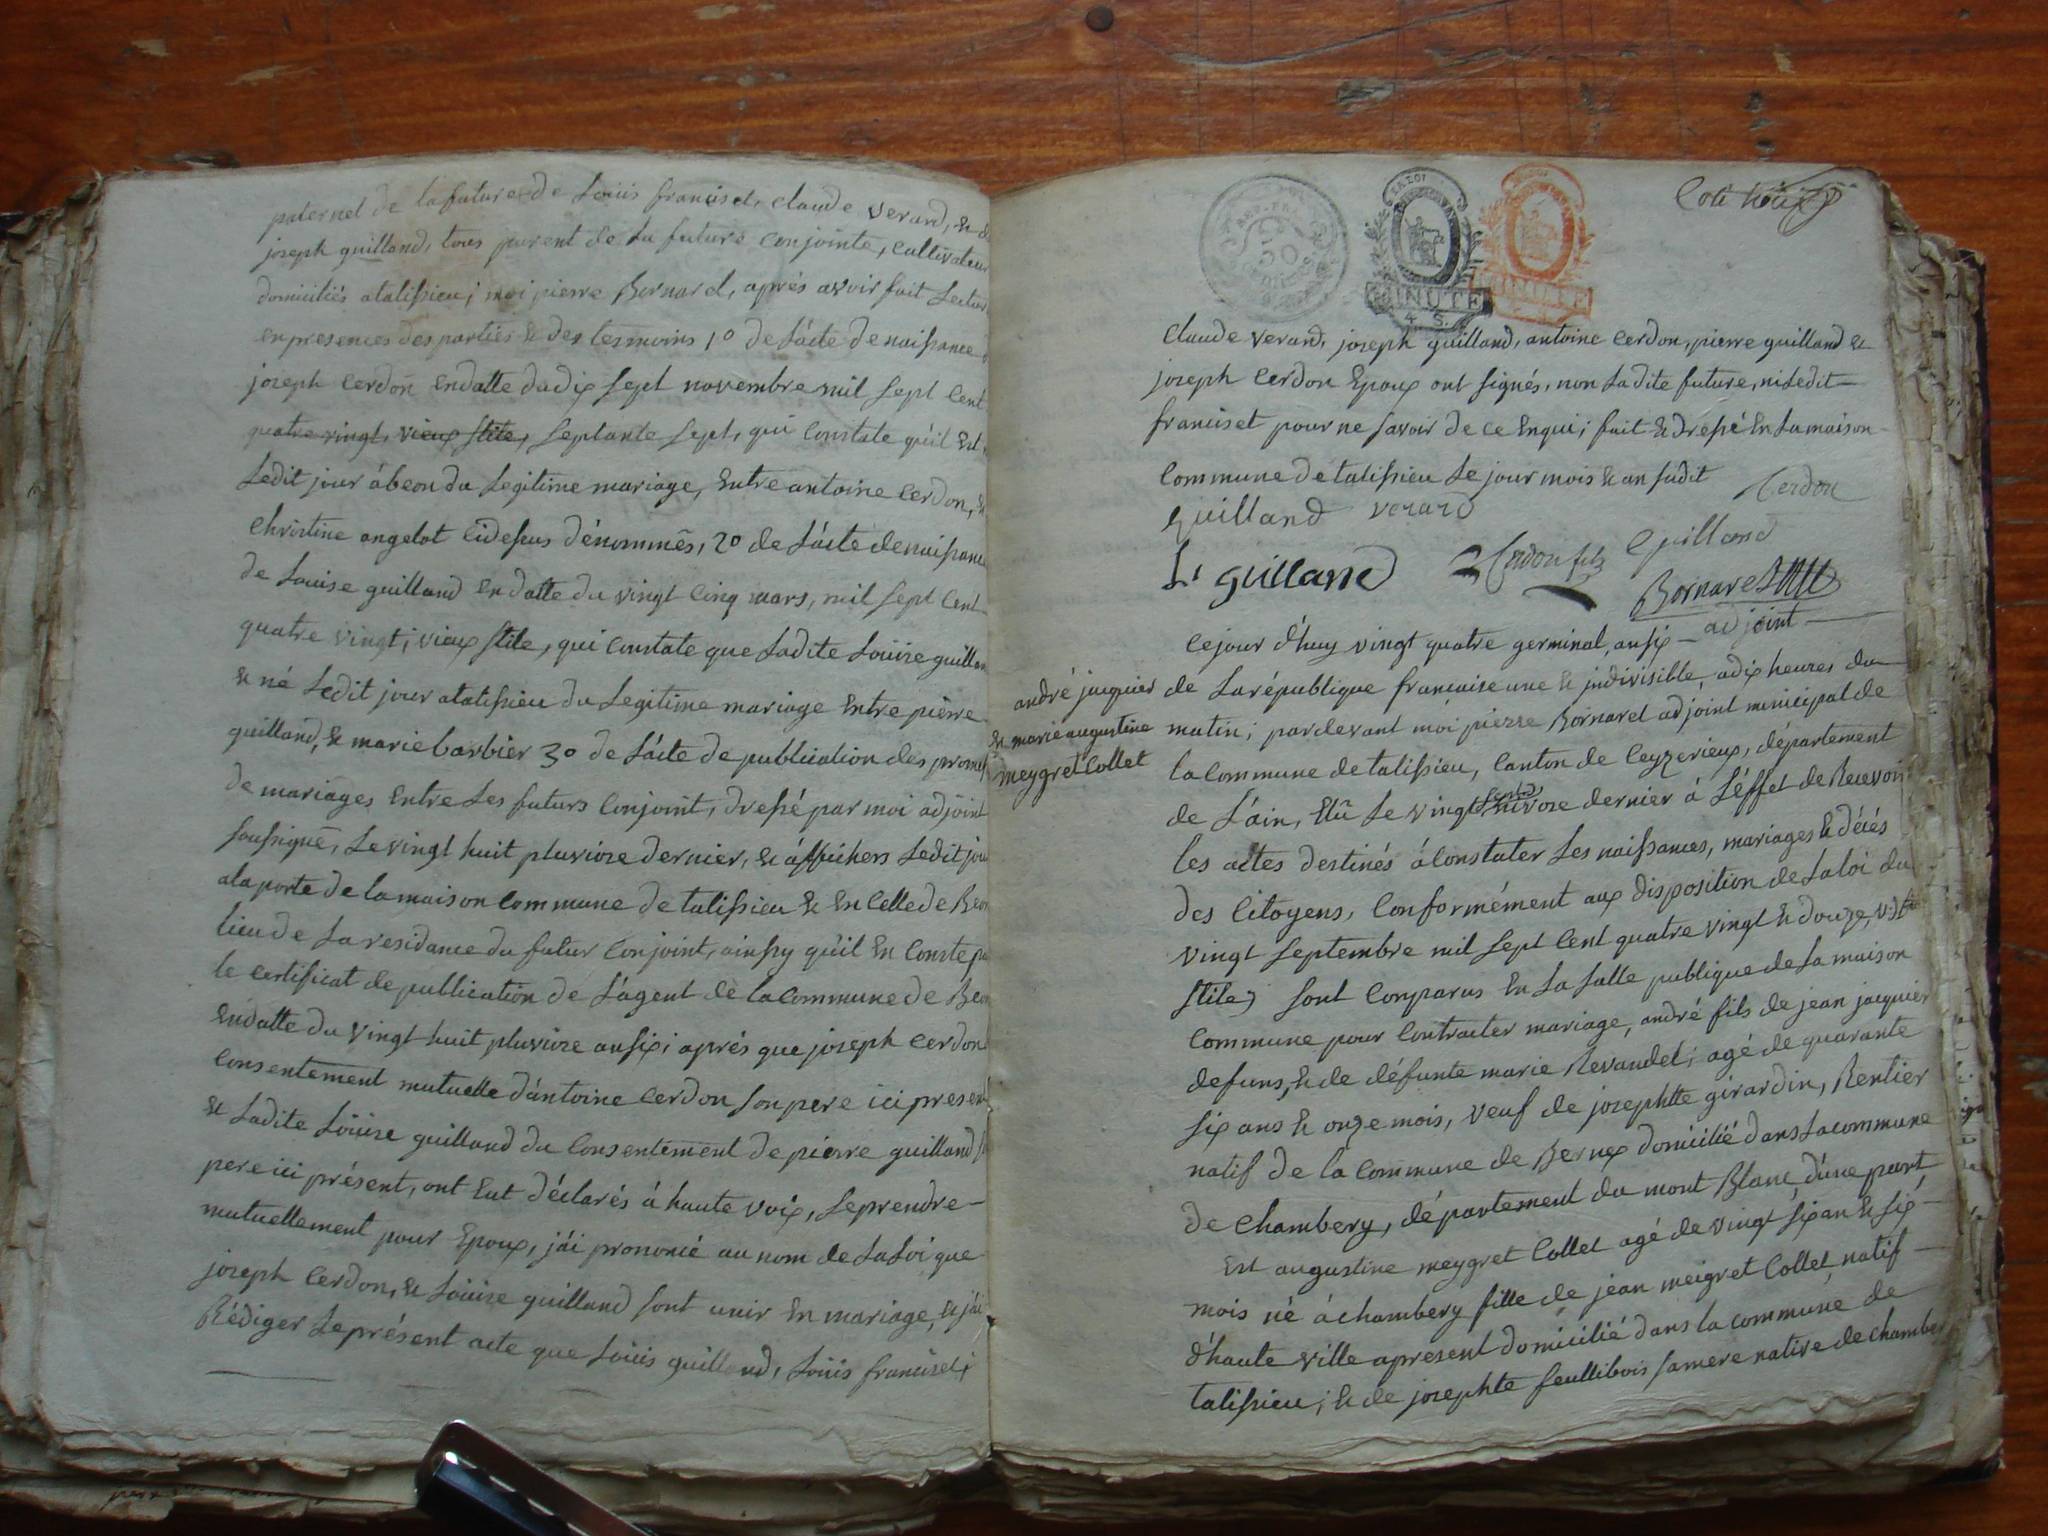 paternel de la future de Louis franciset, claude verard, & de
joseph guilland, tous parent de la future conjointe, cultivateur
domiciliés a talissieu; moi pierre Bornarel, aprés avoir fait Lecture
en presences des parties & des tesmoins 1o de L'acte de naissance
joseph Cerdon En datte du dix sept novembre mil sept Cent
quatre vingt, vieux stile, septante sept, qui Constate qu'il Est
Ledit jour à béon du Legitime mariage, Entre antoine Cerdon, &
Christine angelot Cidessus dénommés, 2o de L'acte de naissance
de Louise guilland En datte du vingt Cinq mars, mil sept Cent
quatre vingt; vieux stile, qui Constate que Ladite Louise guilland
& né Ledit jour a talissieu du Legitime mariage Entre pierre
guilland, & marie barbier 3o de L'acte de publication des promes
de mariages Entre Les futurs Conjoint, dressé par moi adjoint
soussigné, Le vingt huit pluviose dernier, & affichers Ledit jour
a la porte de la maison Commune de talissieu & En Celle de Beon
lieu de La residance du futur Conjoint, ainsy qu'il En Conste pa
le certificat de publication de L'agent de la Commune de Beon
En datte du vingt huit pluviose an six; aprés que joseph Cerdon
Consentement mutuelle d'antoine Cerdon son pere ici present
& Ladite Louise guilland du Consentement de pierre guilland s
pere ici présent, ont Eut déclarés à haute voix, se prendre
mutuellement pour Epoux, j'ai prononcé au nom de La Loi que
joseph Cerdon, & Louise guilland sont unir En mariage, & j'ai
Rédiger Le présent acte que Louis guilland, Louis franciset;
Claude verard, joseph guilland, antoine Cerdon, pierre guilland &
joseph Cerdon Epoux ont signés, non Ladite future, ni Ledit
franciset pour ne savoir de ce Enqui; fait & dressé En La maison
Commune de talissieu Le jour mois & an sudit
Cerdon
guilland verard
Ls guilland Cerdon fils guilland
Bornarel
adjoint
Ce jour d'huy vingt quatre germinal, an six
andré jacquier
& marie augustine
meygret Collet
de La république francaise une & jndivisible, a dix heures du
matin; par devant moi pierre Bornarel adjoint municipal de
la Commune de talissieu, Canton de Ceyzerieux, département
de L'ain, Elû Le vingt sept nivose dernier à L'éffet de Recevoir
les actes destinés à Constater Les naissances, mariages & décés
des Citoyens, Conformément aux disposition de La loi du
vingt septembre mil sept Cent quatre vingt & douze, v.
stile; sont Comparus En La salle publique de La maison
Commune pour Contracter mariage, andré fils de jean jacquier
defuns, & de défunte marie Revandel; agé de quarante
six ans & onze mois, veuf de josephtte girardin, Rentier
natif de la Commune de Bernex domicilié dans La commune
de Chambery, département du mont Blanc, d'une part,
Est augustine meygret Collet agé de vingt six an & six
mois né à chambery fille de jean meigret Collet, natif
d'haute ville apresent domicilié dans la commune de
talissieu; & de josephte feullibois sa mere native de Chamber
MINUTE
4 S.